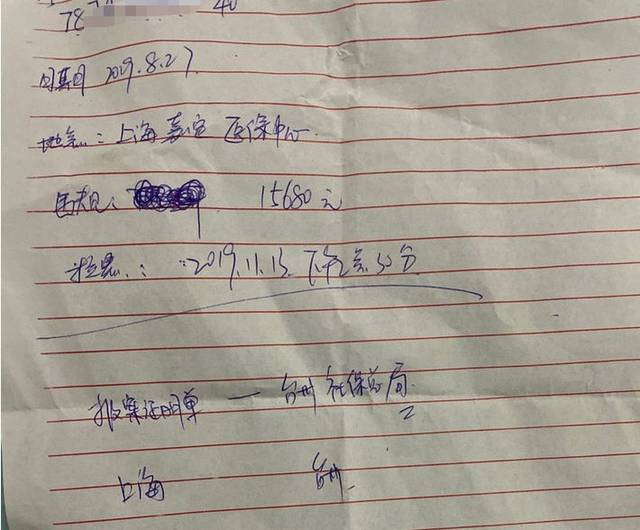 78 40
日期 2019.8.27
地点:上海嘉定医保中心
15680元
2019.11.13 下午2点30分
报案证明单 — 台州社保分局
上海 台州